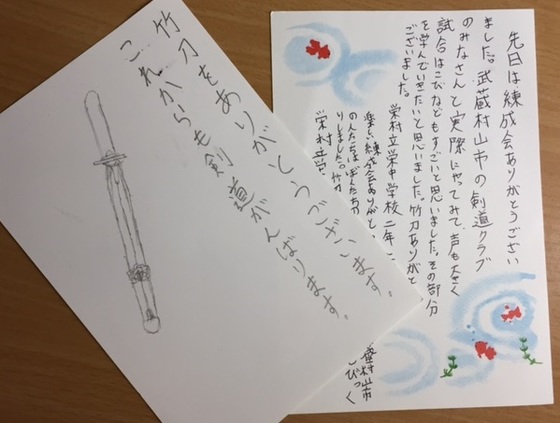 先日は練成会ありがとうござい
ました。武蔵村山市の剣道クラブ
のみなさんと実際にやってみて、声も大きく
試合はこびなどもすごいと思いました。その部分
を学んでいきたいと思いました。竹刀ありがと
ございました。
栄村立栄中学校 二年
楽しい練成会ありがと
の人たちはぼくたちの
りしました。竹刀
栄村立
村山市
竹刀をありがとうございます。
これからも剣道がんばります。